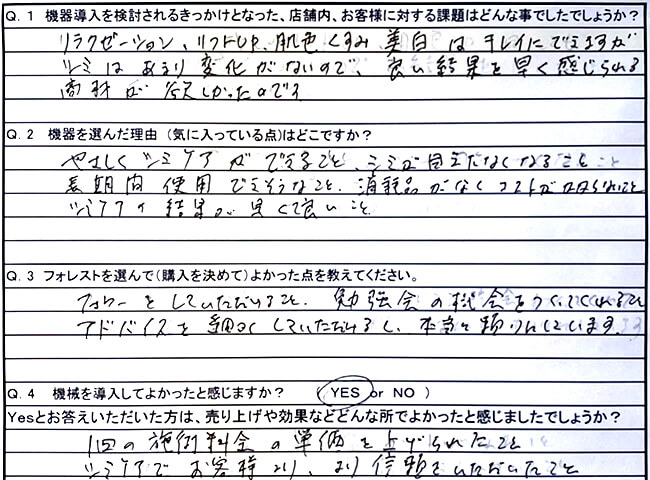 Q. 1 機器導入を検討されるきっかけとなった、店舗内、お客様に対する課題はどんな事でしたでしょうか?
リラクゼーション、リフトup、肌色くすみ 美白 は キレイにできますが
シミは あまり 変化がないので、良い結果を早く感じられる
商材が 欲しかったのです
Q. 2 機器を選んだ理由 (気に入っている点)はどこですか?
やさしくシミケアができること、シミが目立たなくなること
長期間 使用できそうなこと、消耗品がなくコストがかからないこと
シミケアの結果が早くて良いこと
Q. 3 フォレストを選んで(購入を決めて)よかった点を教えてください。
フォローをしていただけること、勉強会の機会をつくってくれること
アドバイスを細かくしていただけるし、本当に頼りにしています
Q. 4 機械を導入してよかったと感じますか? ( YES or NO )
Yesとお答えいただいた方は、売り上げや効果などどんな所でよかったと感じましたでしょうか?
1回の施術料金の単価を上げられたこと
シミケアでお客様より、より信頼をいただいたこと